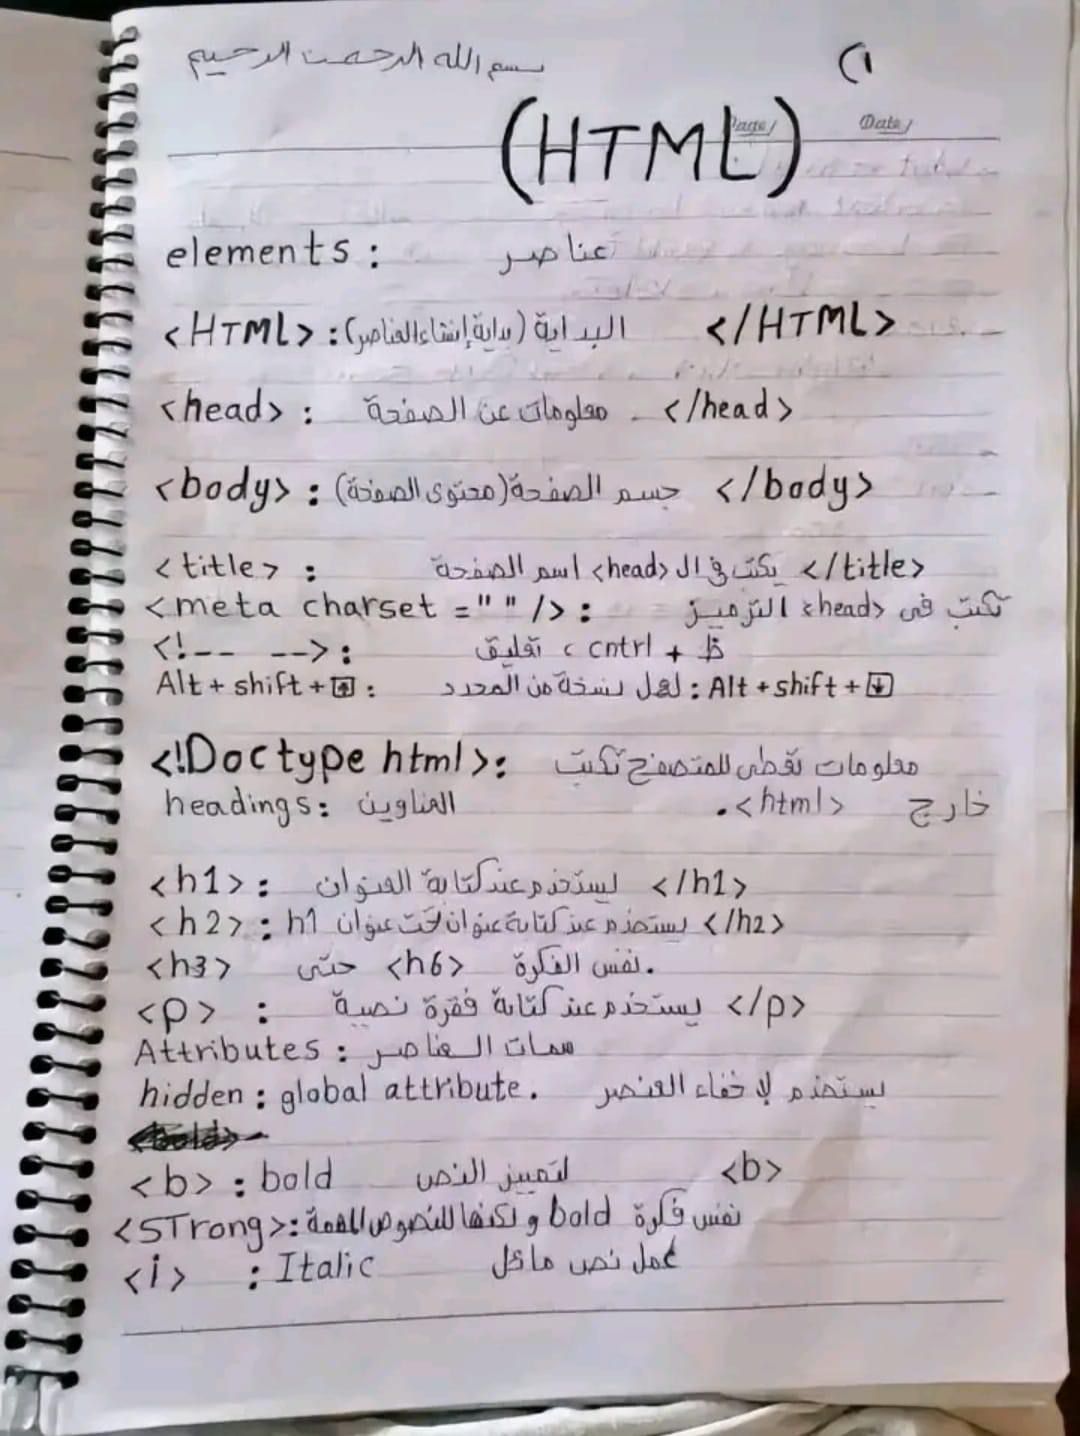 بسم الله الرحمن الرحيم
(1
Page/ Date/
(HTML)
elements : عناصر
<HTML> : البداية (بداية إنشاء العناصر) </HTML>
<head> : معلومات عن الصفحة . </head>
<body> : جسم الصفحة (محتوى الصفحة) </body>
<title> : اسم الصفحة <head> يكتب في ال </title>
<meta charset ="" /> : الترميز <head> تكتب في
<!-- --> : تعليق ، cntrl + ظ
Alt + shift + ↑ : لعمل نسخة من المحدد : Alt + shift + ↓
<!Doctype html> : معلومات تعطى للمتصفح تكتب
headings : العناوين خارج <html>.
<h1> : يستخدم عند كتابة العنوان </h1>
<h2> : h1 يستخدم عند كتابة عنوان تحت عنوان </h2>
<h3> حتى <h6> نفس الفكرة.
<p> : يستخدم عند كتابة فقرة نصية </p>
Attributes : سمات العناصر
hidden : global attribute. يستخدم لإخفاء العنصر
<b> : bold لتمييز النص <b>
<STrong> : نفس فكرة bold ولكنها للنصوص المهمة
<i> : Italic عمل نص مائل